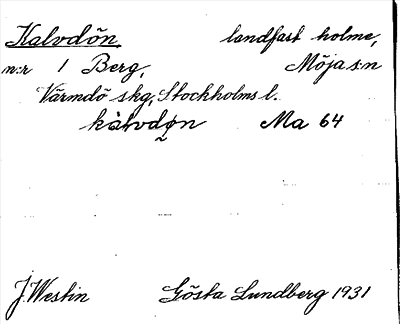 Kalvdön. landfast holme,
n:r 1 Berg, Möja s:n
Värmdö skg, Stockholms l.
kàlvdøn Ma 64
J. Westin Gösta Lundberg 1931